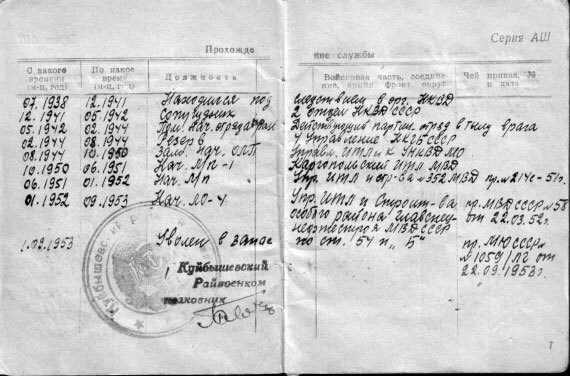 Серия АШ
Прохожде ние службы
С какого времени (м-ц, год) По какое время (м-ц, год) Должность Войсковая часть, соединение, армия фронт округ Чей приказ, № и дата
07.1938 12.1941 Находился под следствием в орг. НКВД
12.1941 05.1942 Сотрудник 2 отдел НКВД СССР
05.1942 02.1944 Действующий партиз. отряд в тылу врага
02.1944 08.1944 Резерв Управление НКГБ СССР
08.1944 10.1950 Зам. Нач. ОЛП Управл. ИТЛ и К УНКВД МО
10.1950 06.1951 Нач. МП-1 Каргопольский ИТЛ МВД
06.1951 01.1952 Нач. МП Упр. ИТЛ и стр-ва № 352 МВД пр. № 214с-51г.
01.1952 09.1953 Нач. ЛО-4. Упр. ИТЛ и Строит-ва пр. МВД СССР № 58
особого района Главспец- от 22.03.52г.
нефтестроя МВД СССР
1.02.1953 Уволен в запас по ст. 54 п. „Б" пр. МЮ СССР
№ 1059/ЛГ от
22.09.1953г.
Куйбышевский
Райвоенком
полковник
7